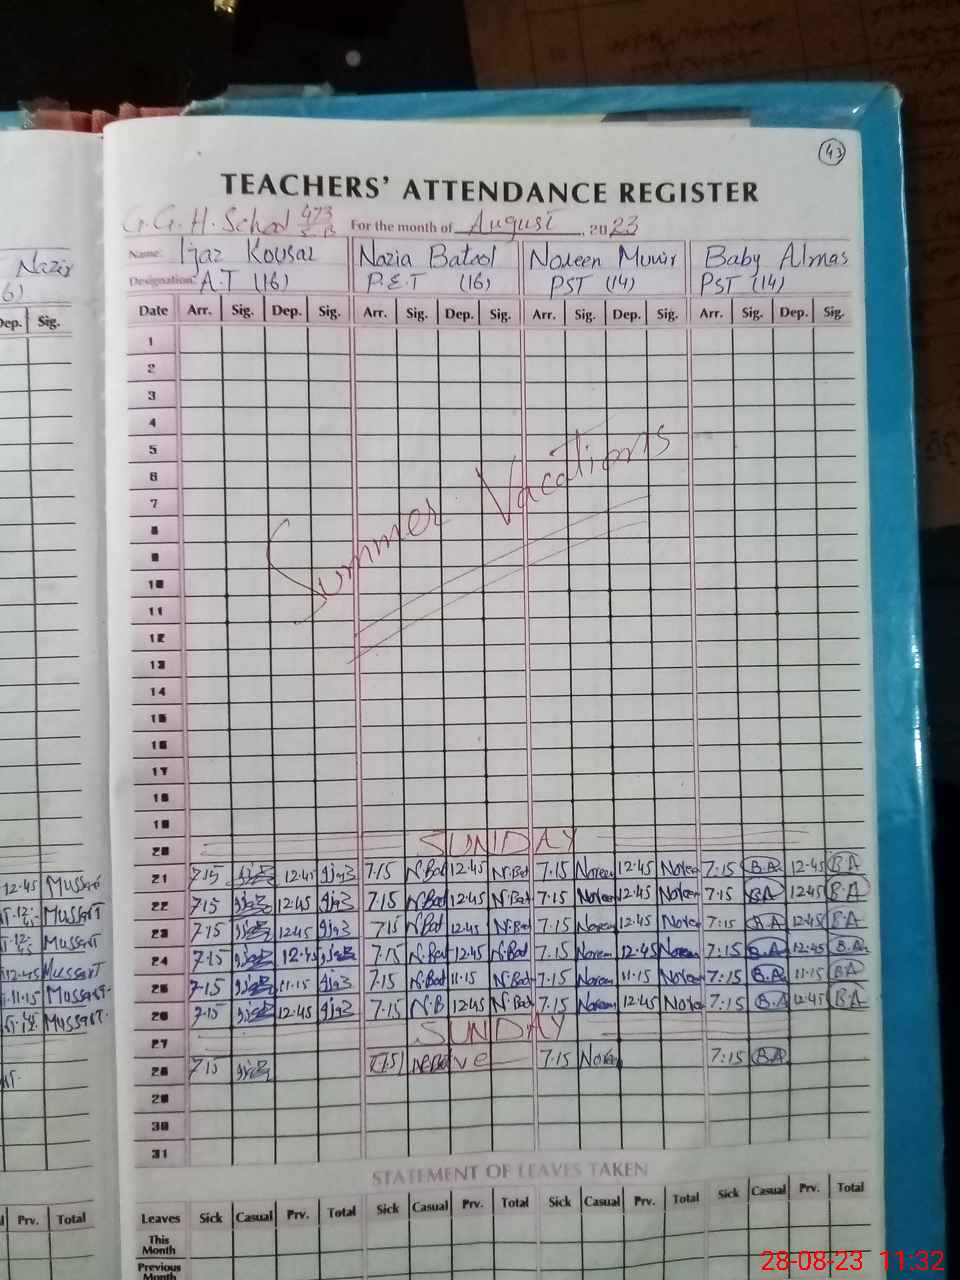 43
TEACHERS' ATTENDANCE REGISTER
G.G.H. School 473 E.B For the month of August, 2023
Name: Ijaz Kousar Nazia Batool Noreen Munir Baby Almas
Designation: A.T (16) P.E.T (16) PST (14) PST (14)
Nazir
6)
Dep. Sig.
Date Arr. Sig. Dep. Sig. Arr. Sig. Dep. Sig. Arr. Sig. Dep. Sig. Arr. Sig. Dep. Sig.
1
2
3
4
5
6
7
8
9
10
11
12
13
14
15
16
17
18
19
Summer Vacations
20 SUNDAY
12-45 Mussart 21 7-15 12-45 7.15 N.Bat 12-45 N.Bat 7.15 Noreen 12-45 Noreen 7:15 B.A 12-45 B A
Mussart 22 7-15 12-45 7.15 N.Bat 12-45 N.Bat 7.15 Noreen 12-45 Noreen 7:15 B.A 12-45 B A
Mussart 23 7-15 12-45 7.15 N.Bat 12-45 N.Bat 7.15 Noreen 12-45 Noreen 7:15 B.A 12-45 B A
12-45 Mussart 24 7-15 12-45 7.15 N.Bat 12-45 N.Bat 7.15 Noreen 12-45 Noreen 7:15 B.A 12-45 B.A
11-15 Mussart 25 7-15 11-15 7.15 N.Bat 11-15 N.Bat 7.15 Noreen 11-15 Noreen 7:15 B.A 11-15 B A
Mussart 26 7-15 12-45 7.15 N.B 12-45 N.Bat 7.15 Noreen 12-45 Noreen 7:15 B.A 12-45 B A
27 SUNDAY
28 7-15 7.15 7.15 Noreen 7:15 B.A
29
30
31
STATEMENT OF LEAVES TAKEN
Prv. Total Leaves Sick Casual Prv. Total Sick Casual Prv. Total Sick Casual Prv. Total Sick Casual Prv. Total
This Month
Previous Month
28-08-23 11:32